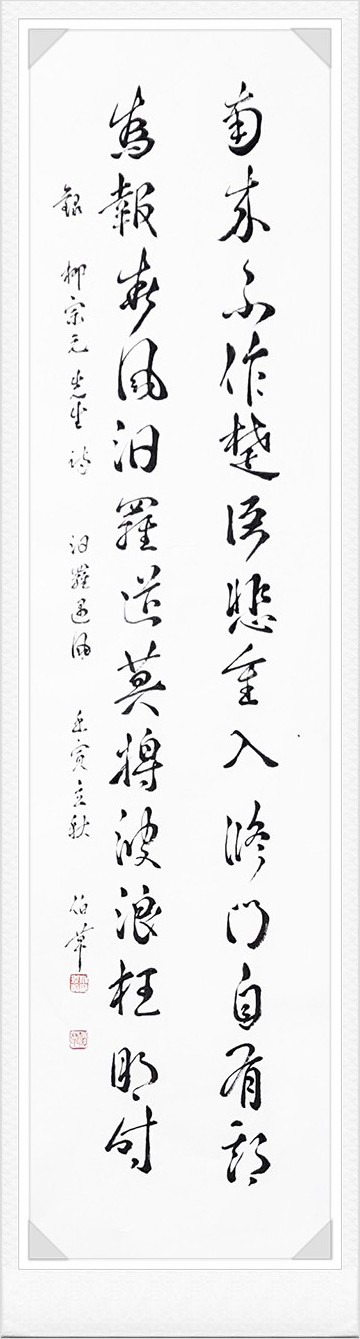 南来不作楚臣悲重入脩門自有期
為報春風汨羅道莫將波浪枉明時
錄 柳宗元先生詩 汨羅遇風 壬寅立秋 伯